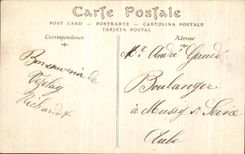 Carte Postale
POST CARD - POSTKARTE - CARTOLINA POSTALE
TARJETA POSTAL
Correspondance
Adresse
Bon souvenir de
Vézelay
Richard
Mr André
Boulanger
à Mussy sur Seine
Aube